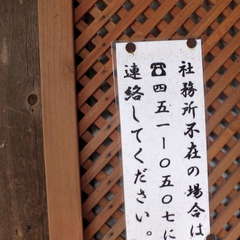 社務所不在の場合は
☎四五一ー〇五〇七に
連絡してください。